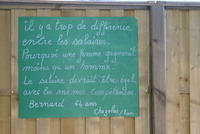 il y a trop de différence
entre les salaires.
Pourquoi une femme gagnerait
moins qu'un homme.
Le salaire devrait être égal,
avec les mêmes compétences.
Bernard 64 ans